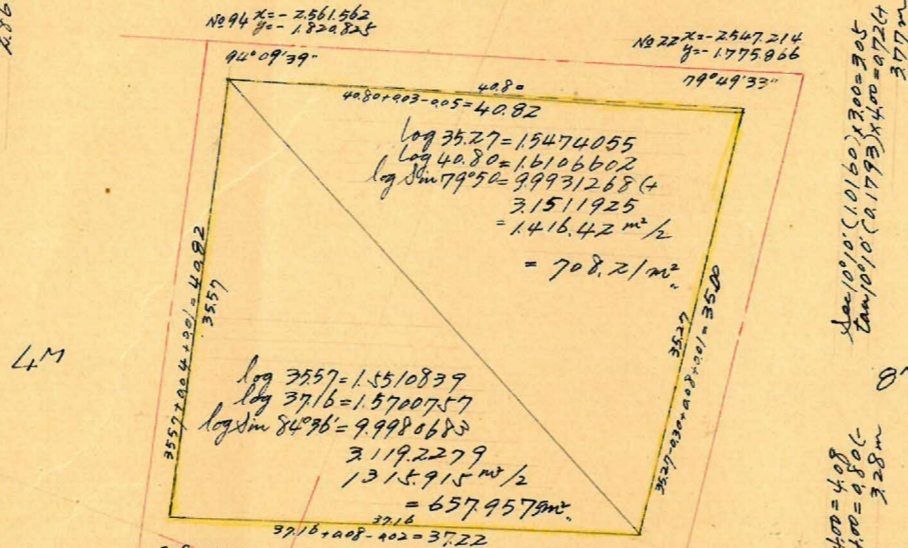 №94 x=-2.561.562
y=-1.820.825
№22 x=-2547.214
y=-1.775.866
94°09'39"
79°49'33"
40.80
40.80+0.03-0.05=40.82
log 35.27=1.5474055
log 40.80=1.6106602
log sin 79°50=9.9931268(+
3.1511925
=1.416.42 m²/2
= 708.21 m²
35.57+0.04+0.01=40.82
35.57
35.27
35.27-0.30+0.08+0.01=35.00
log 35.57=1.5510839
log 37.16=1.5700757
log sin 84°36'=9.9980683
3.1192279
1315.915 m²/2
= 657.9575m²
37.16
37.16+0.08-0.02=37.22
4M
2.86
sec 10°10' (1.0160)×3.00=3.05
tan 10°10' (0.1793)×4.00=0.72(+
3.77m
4.00=4.08
4.00=0.80(-
3.28m